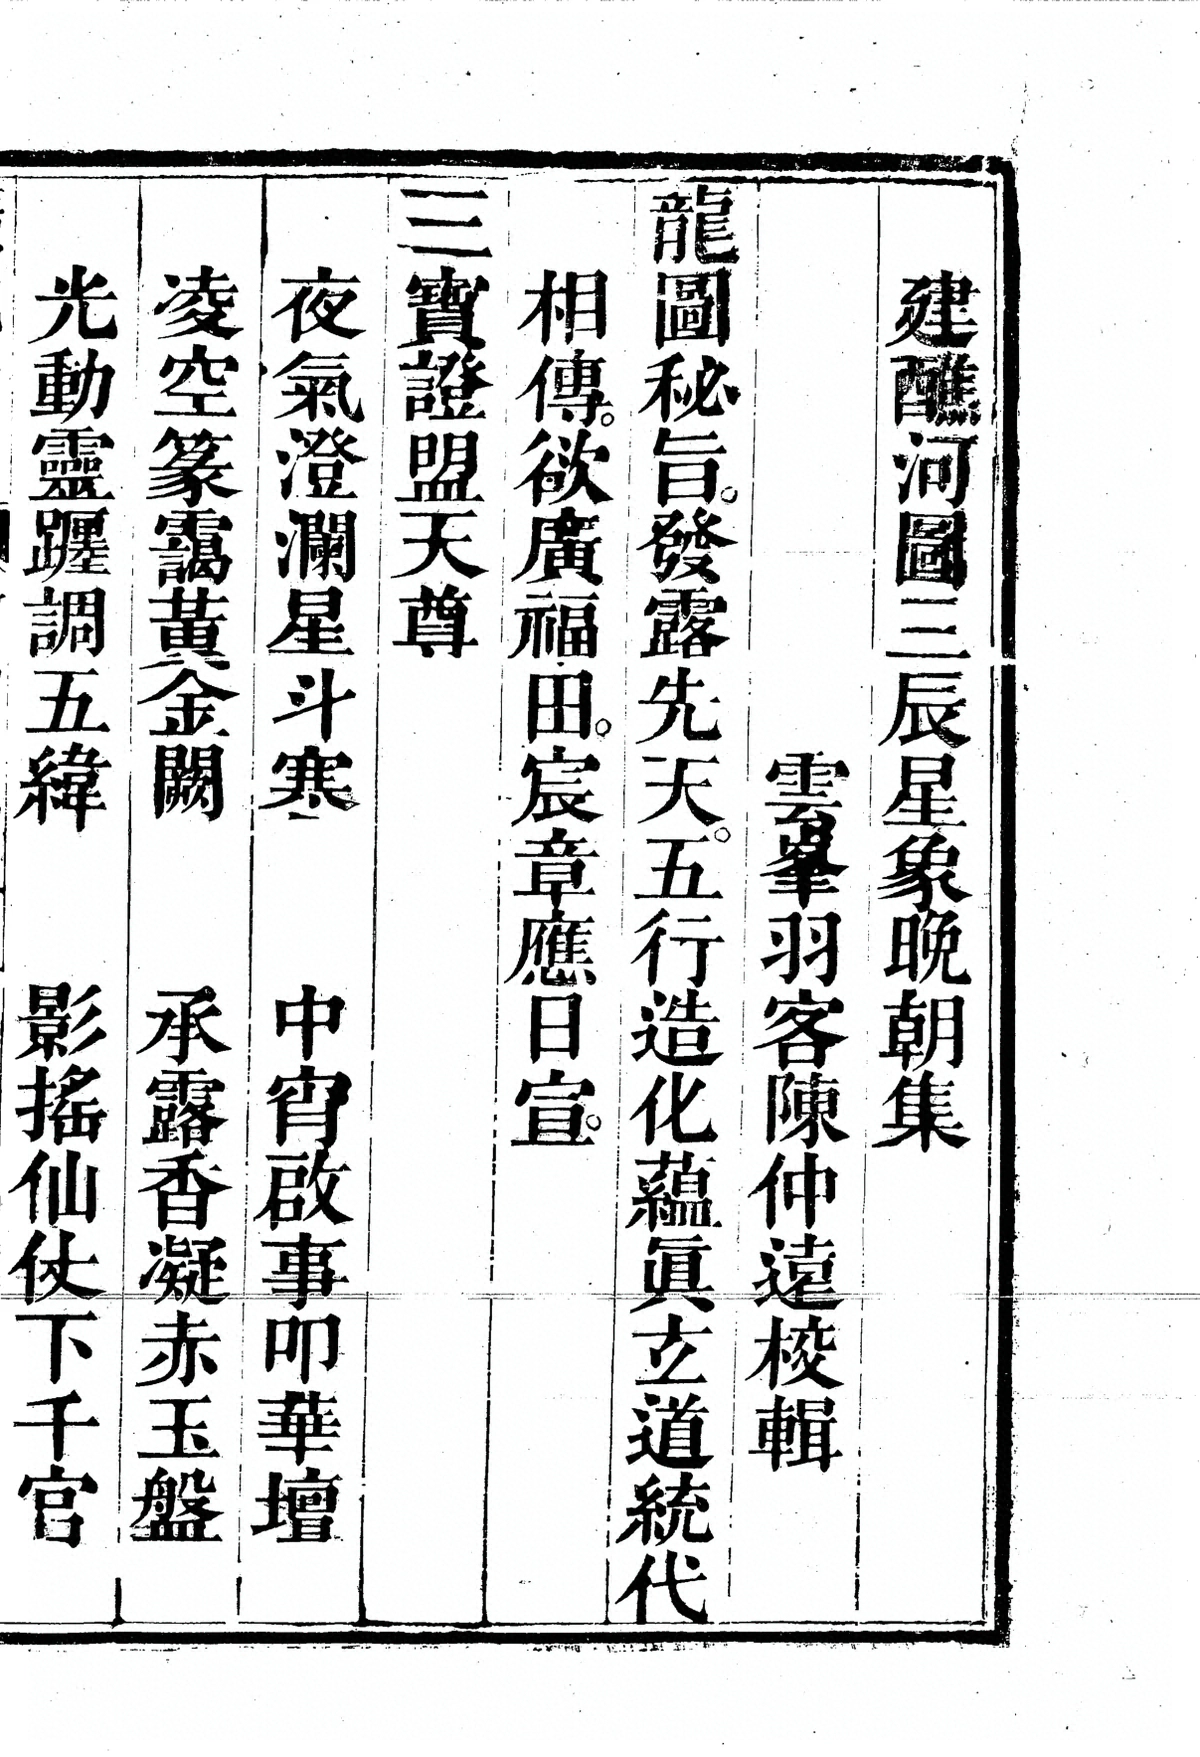 建醮河圖三辰星象晚朝集
雲峯羽客陳仲遠校輯
龍圖秘旨。發露先天。五行造化蘊眞立道統代
相傳。欲廣福田。宸章應日宣。
三寶證盟天尊
夜氣澄瀾星斗寒　中宵啟事叩華壇
凌空篆靄黃金闕　承露香凝赤玉盤
光動靈躔調五緯　影搖仙仗下千官